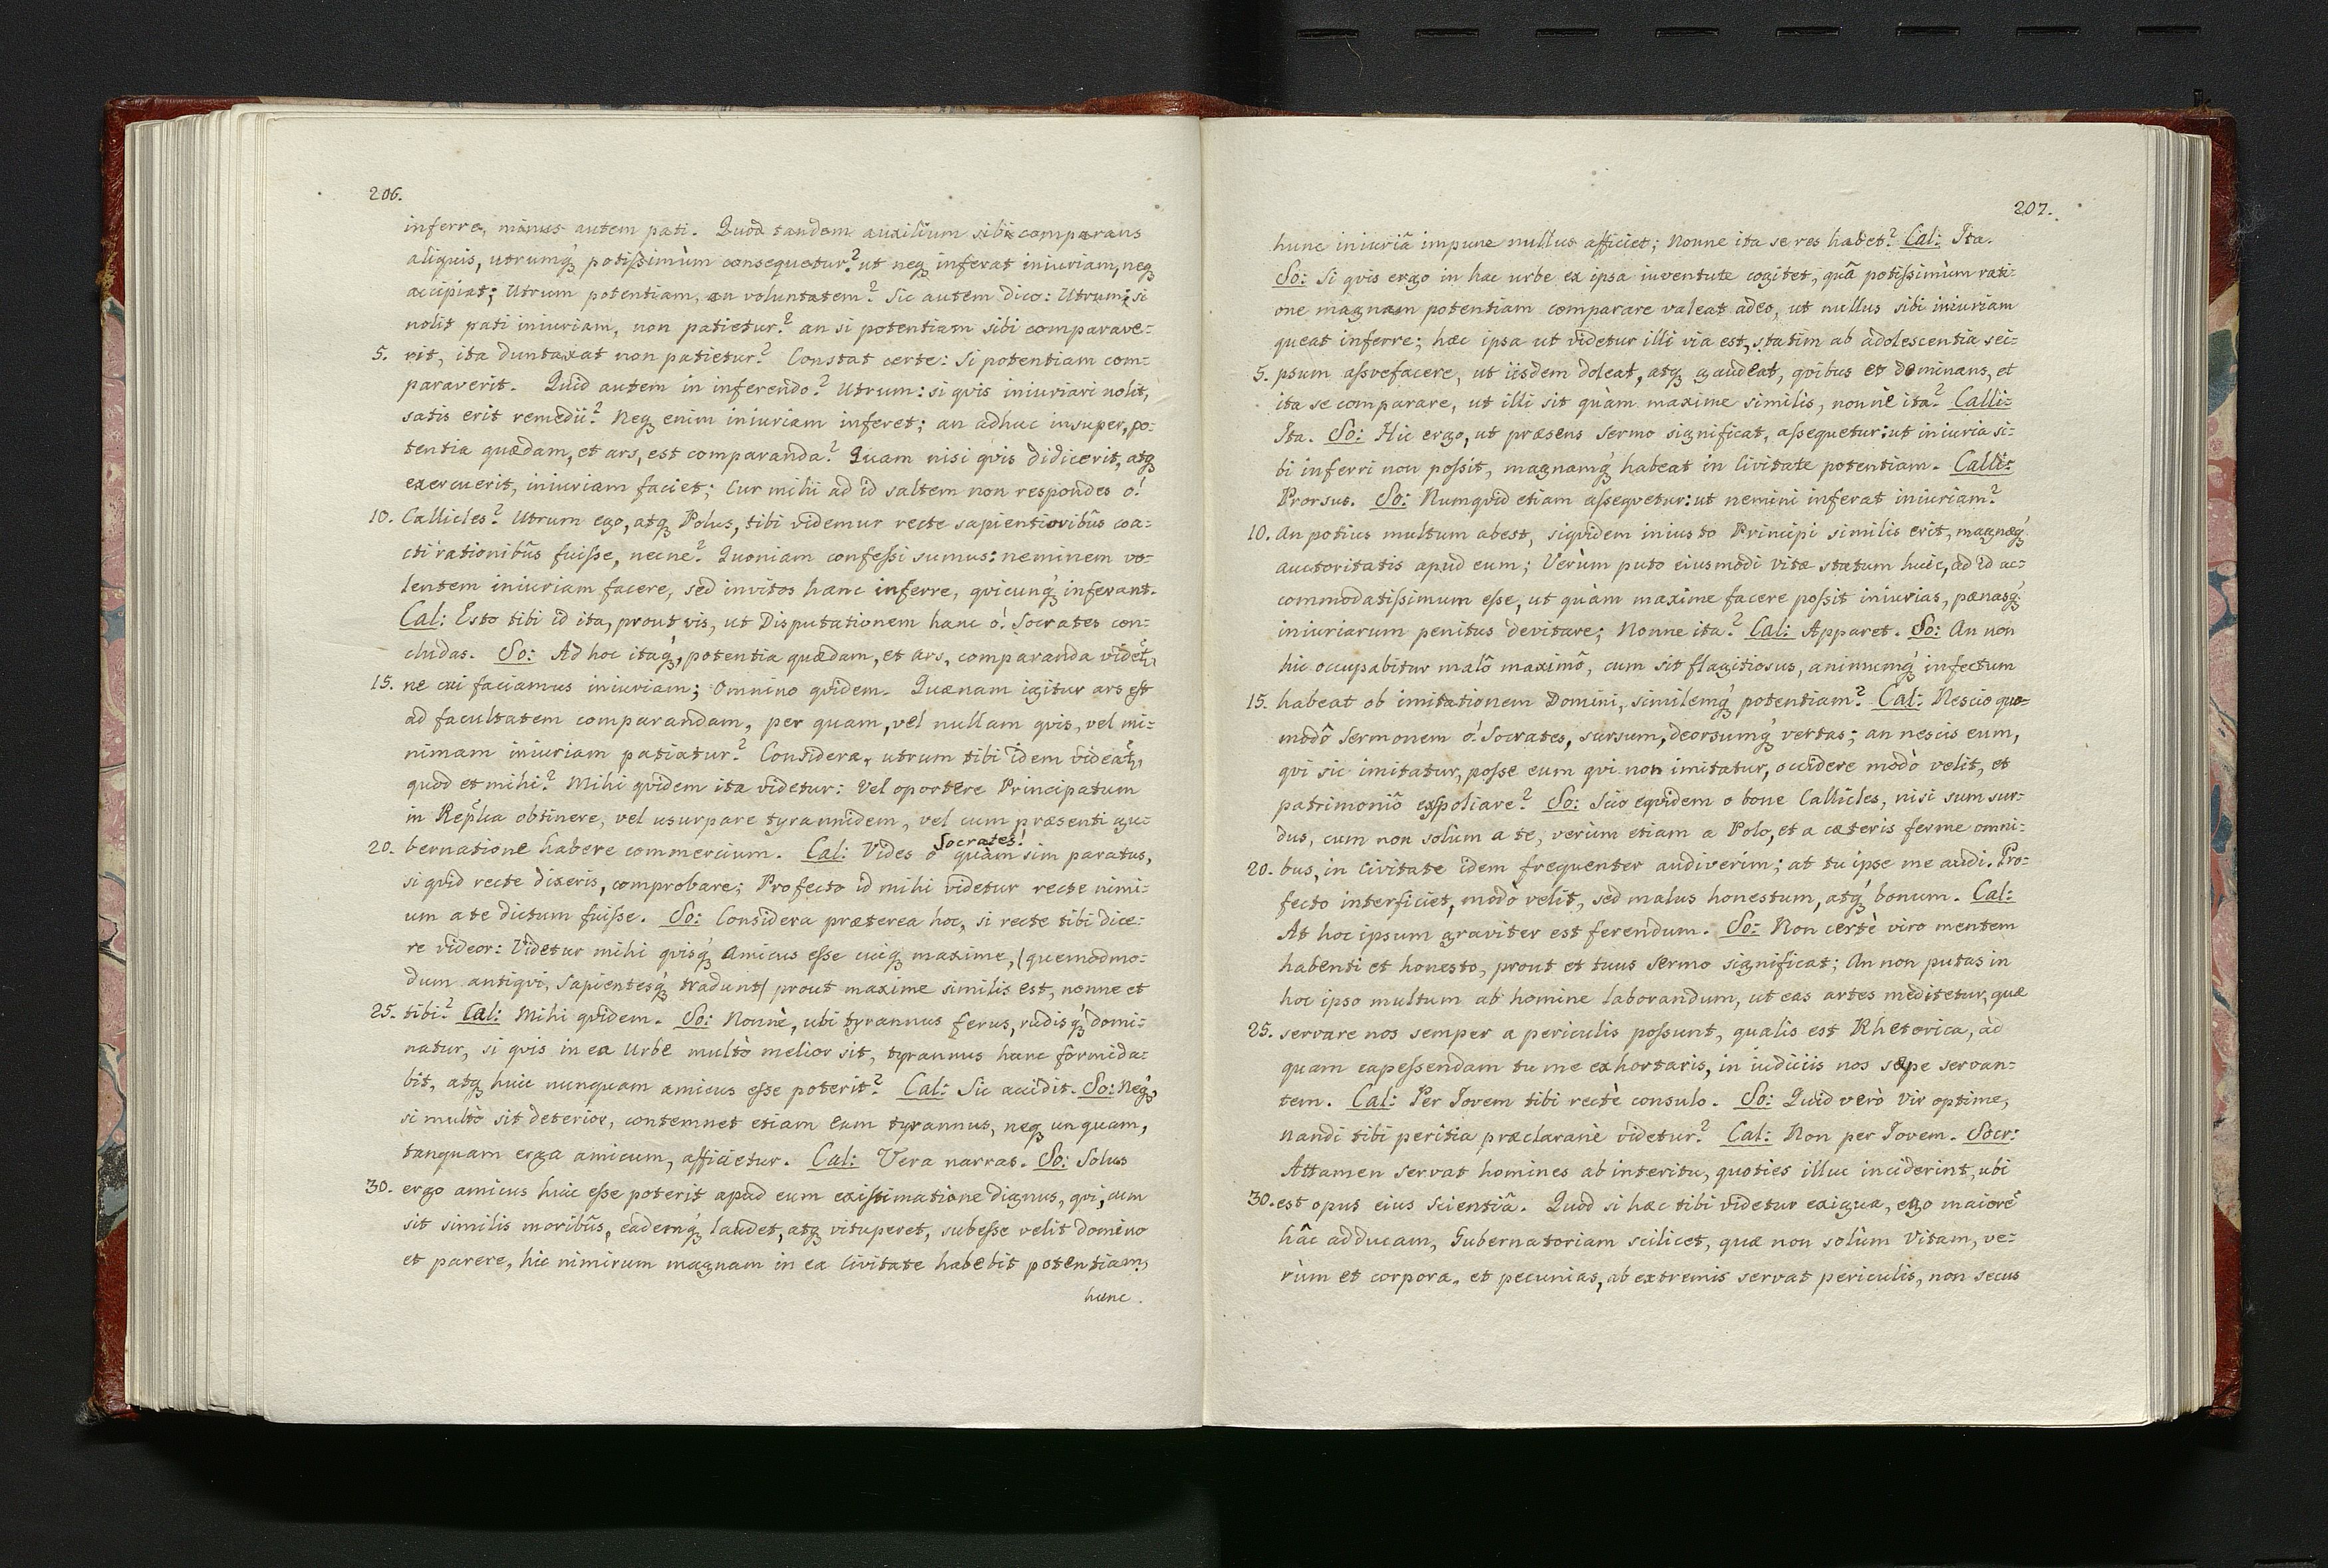 206.
inferre, minus autem pati. Quod tandem auxilium sibi comparans
aliquis, utrumq́ꝫ potißimùm consequetur? ut neqꝫ inferat iniuriam, neqꝫ
accipiat; Utrum potentiam, an voluntatem? Sic autem dico: Utrum: si
nolit pati iniuriam, non patietur? an si potentiam sibi comparave:
5. rit, ita duntaxat non patietur? Constat certe: Si potentiam com:
paraverit. Quid autem in inferendo? Utrum: si qvis iniuriari nolit,
satis erit remedii? Neqꝫ enim iniuriam inferet; an adhuc insuper, po:
tentia quædam, et ars, est comparanda? Quam nisi qvis didicerit, atqꝫ
exercuerit, iniuriam faciet; Cur mihi ad id saltem non respondes o!
10. Callicles? Utrum ego, atqꝫ Polus, tibi videmur recte sapientioribûs coa:
cti rationibûs fuiße, necne? Quoniam confeßi sumus: neminem vo:
lentem iniuriam facere, sed invitos hanc inferre, qvicunq́ꝫ inferant.
Cal: Esto tibi id ita, prout vis, ut Disputationem hanc o! Socrates con:
cludas. So: Ad hoc itaq́ꝫ, potentia quædam, et ars, comparanda videt̃,
15. ne cui faciamus iniuriam; Omnino qvidem. Quænam igitur ars est
ad facultatem comparandam, per quam, vel nullam qvis, vel mi:
nimam iniuriam patiatur? Considera, utrum tibi idem videat̃,
quod et mihi? Mihi qvidem ita videtur: Vel oportere Principatum
in Repl̃ica obtinere, vel usurpare tyrannidem, vel cum præsenti gu:
Socrates!
20. bernatione habere commercium. Cal: Vides o quàm sim paratus,
si qvid recte dixeris, comprobare; Profecto id mihi videtur recte nimi:
um a te dictum fuiße. So: Considera præterea hoc, si recte tibi dice:
re videor: Videtur mihi qvisq́ꝫ Amicus eße cuiqꝫ maxime, (quemadmo:
dum antiqvi, sapientesq́ꝫ tradunt) prout maxime similis est, nonne et
25. tibi? Cal: Mihi qvidem. So: Nonnè, ubi tyrannus ferus, rudisq́ꝫ domi:
natur, si qvis in ea Urbe multò melior sit, tyrannus hunc formida:
bit, atqꝫ huic nunquam amicus eße poterit? Cal: Sic accidit. So: Neq́ꝫ,
si multò sit deterior, contemnet etiam eum tyrannus, neqꝫ unquam,
tanquam erga amicum, afficietur. Cal: Vera narras. So: Solus
30. ergo amicus huic eße poterit apud eum existimatione dignus, qvi, cum
sit similis moribûs, eademq́ꝫ laudet, atqꝫ vituperet, subeße velit domino
et parere, hic nimirum magnam in ea Civitate habebit potentiam,
hunc
207.
hunc iniuriâ impune nullus afficiet; Nonne ita se res habet? Cal: Ita.
So: Si qvis ergo in hac urbe ex ipsa iuventute cogitet, quâ potißimùm rati:
one magnam potentiam comparare valeat adeo, ut nullus sibi iniuriam
queat inferre; hæc ipsa ut videtur illi via est, statim ab adolescentia sei:
5. psum aßvefacere, ut iisdem doleat, atqꝫ gaudeat, qvibus et dominans, et
ita se comparare, ut illi sit quàm maxime similis, nonnè ita? Calli:
Ita. So: Hic ergo, ut præsens sermo significat, aßequetur: ut iniuria si:
bi inferri non poßit, magnamq́ꝫ habeat in Civitate potentiam. Calli:
Prorsus. So: Numqvid etiam aßeqvetur: ut nemini inferat iniuriam?
10. An potius multum abest, siqvidem iniusto Principi similis erit, magnæq́ꝫ
auctoritatis apud eum; Verùm puto eiusmodi vitæ statum huic, ad id ac:
commodatißimum eße, ut quàm maxime facere poßit iniurias, pænasq́ꝫ
iniuriarum penitus devitare; Nonne ita? Cal: Apparet. So: An non
hic occupabitur malô maximô, cum sit flagitiosus, animumq́ꝫ infectum
15. habeat ob imitationem Domini, similemq́ꝫ potentiam? Cal: Nescio quo:
modô sermonem o! Socrates, sursum, deorsumq́ꝫ vertas; an nescis eum,
qvi sic imitatur, poße eum qvi non imitatur, occidere modò velit, et
patrimoniô exspoliare? So: Scio eqvidem o bone Callicles, nisi sum sur:
dus, cum non solùm a te, verùm etiam a Polo, et a cæteris ferme omni:
20. bus, in Civitate idem frequenter audiverim; at tu ipse me audi. Pro:
fecto interficiet, modò velit, sed malus honestum, atq́ꝫ bonum. Cal:
At hoc ipsum graviter est ferendum. So: Non certè viro mentem
habenti et honesto, prout et tuus sermo significat; An non putas in
hoc ipso multum ab homine laborandum, ut eas artes meditetur, quæ
25. servare nos semper a periculis poßunt, qualis est Rhetorica, ad
quam capeßendam tu me exhortaris, in iudiciis nos sæpe servan:
tem. Cal: Per Jovem tibi rectè consulo. So: Quid verò Vir optime,
nandi tibi peritia præclaranè videtur? Cal: Non per Jovem. Socr:
Attamen servat homines ab interitu, quoties illuc inciderint, ubi
30. est opus eius scientiâ. Quod si hæc tibi videtur exigua, ego maiorẽ
hâc adducam, Gubernatoriam scilicet, quæ non solùm Vitam, ve:
rùm et corpora, et pecunias, ab extremis servat periculis, non secus